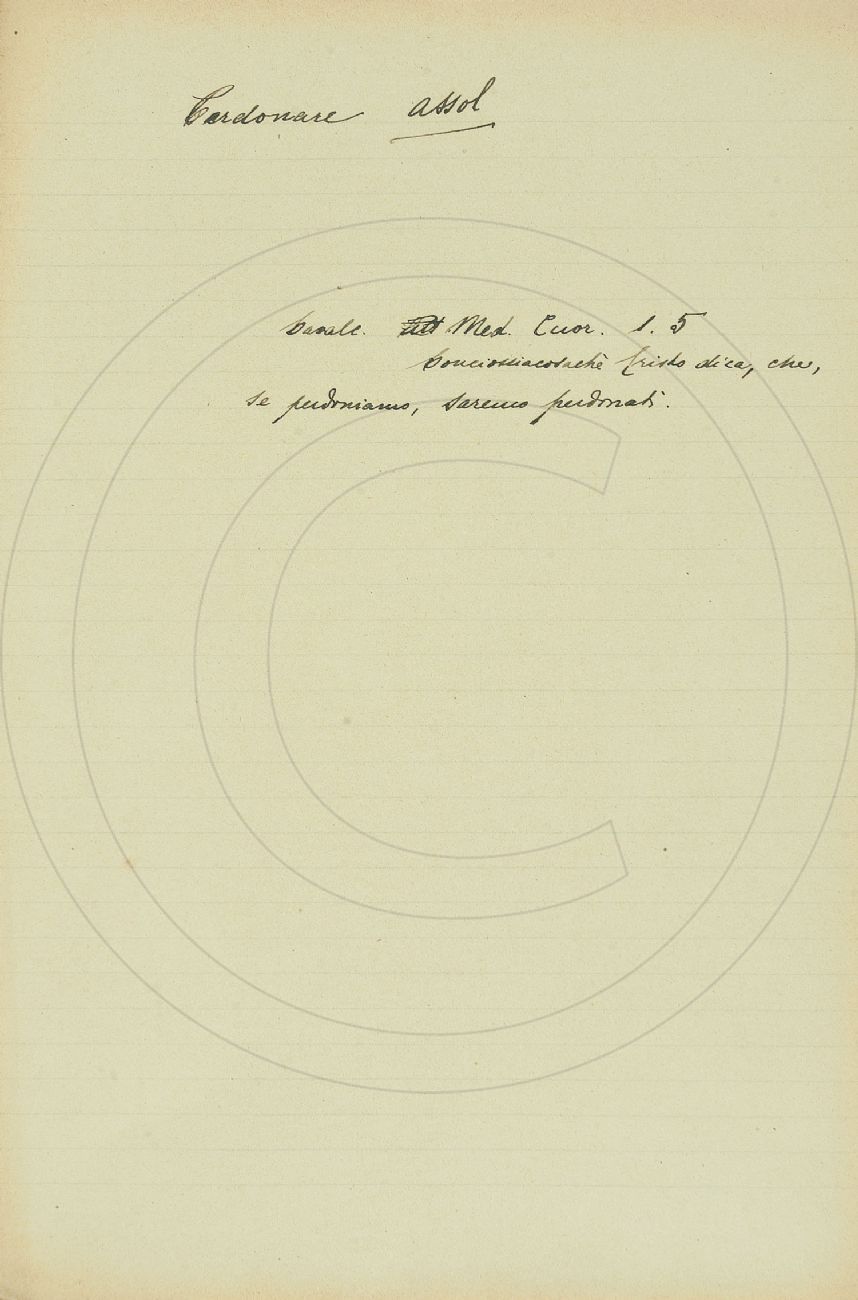 Perdonare assol
Cavalc. Med. Cuor. 1. 5
Conciossiacosachè Cristo dica, che,
se perdoniamo, saremo perdonati.